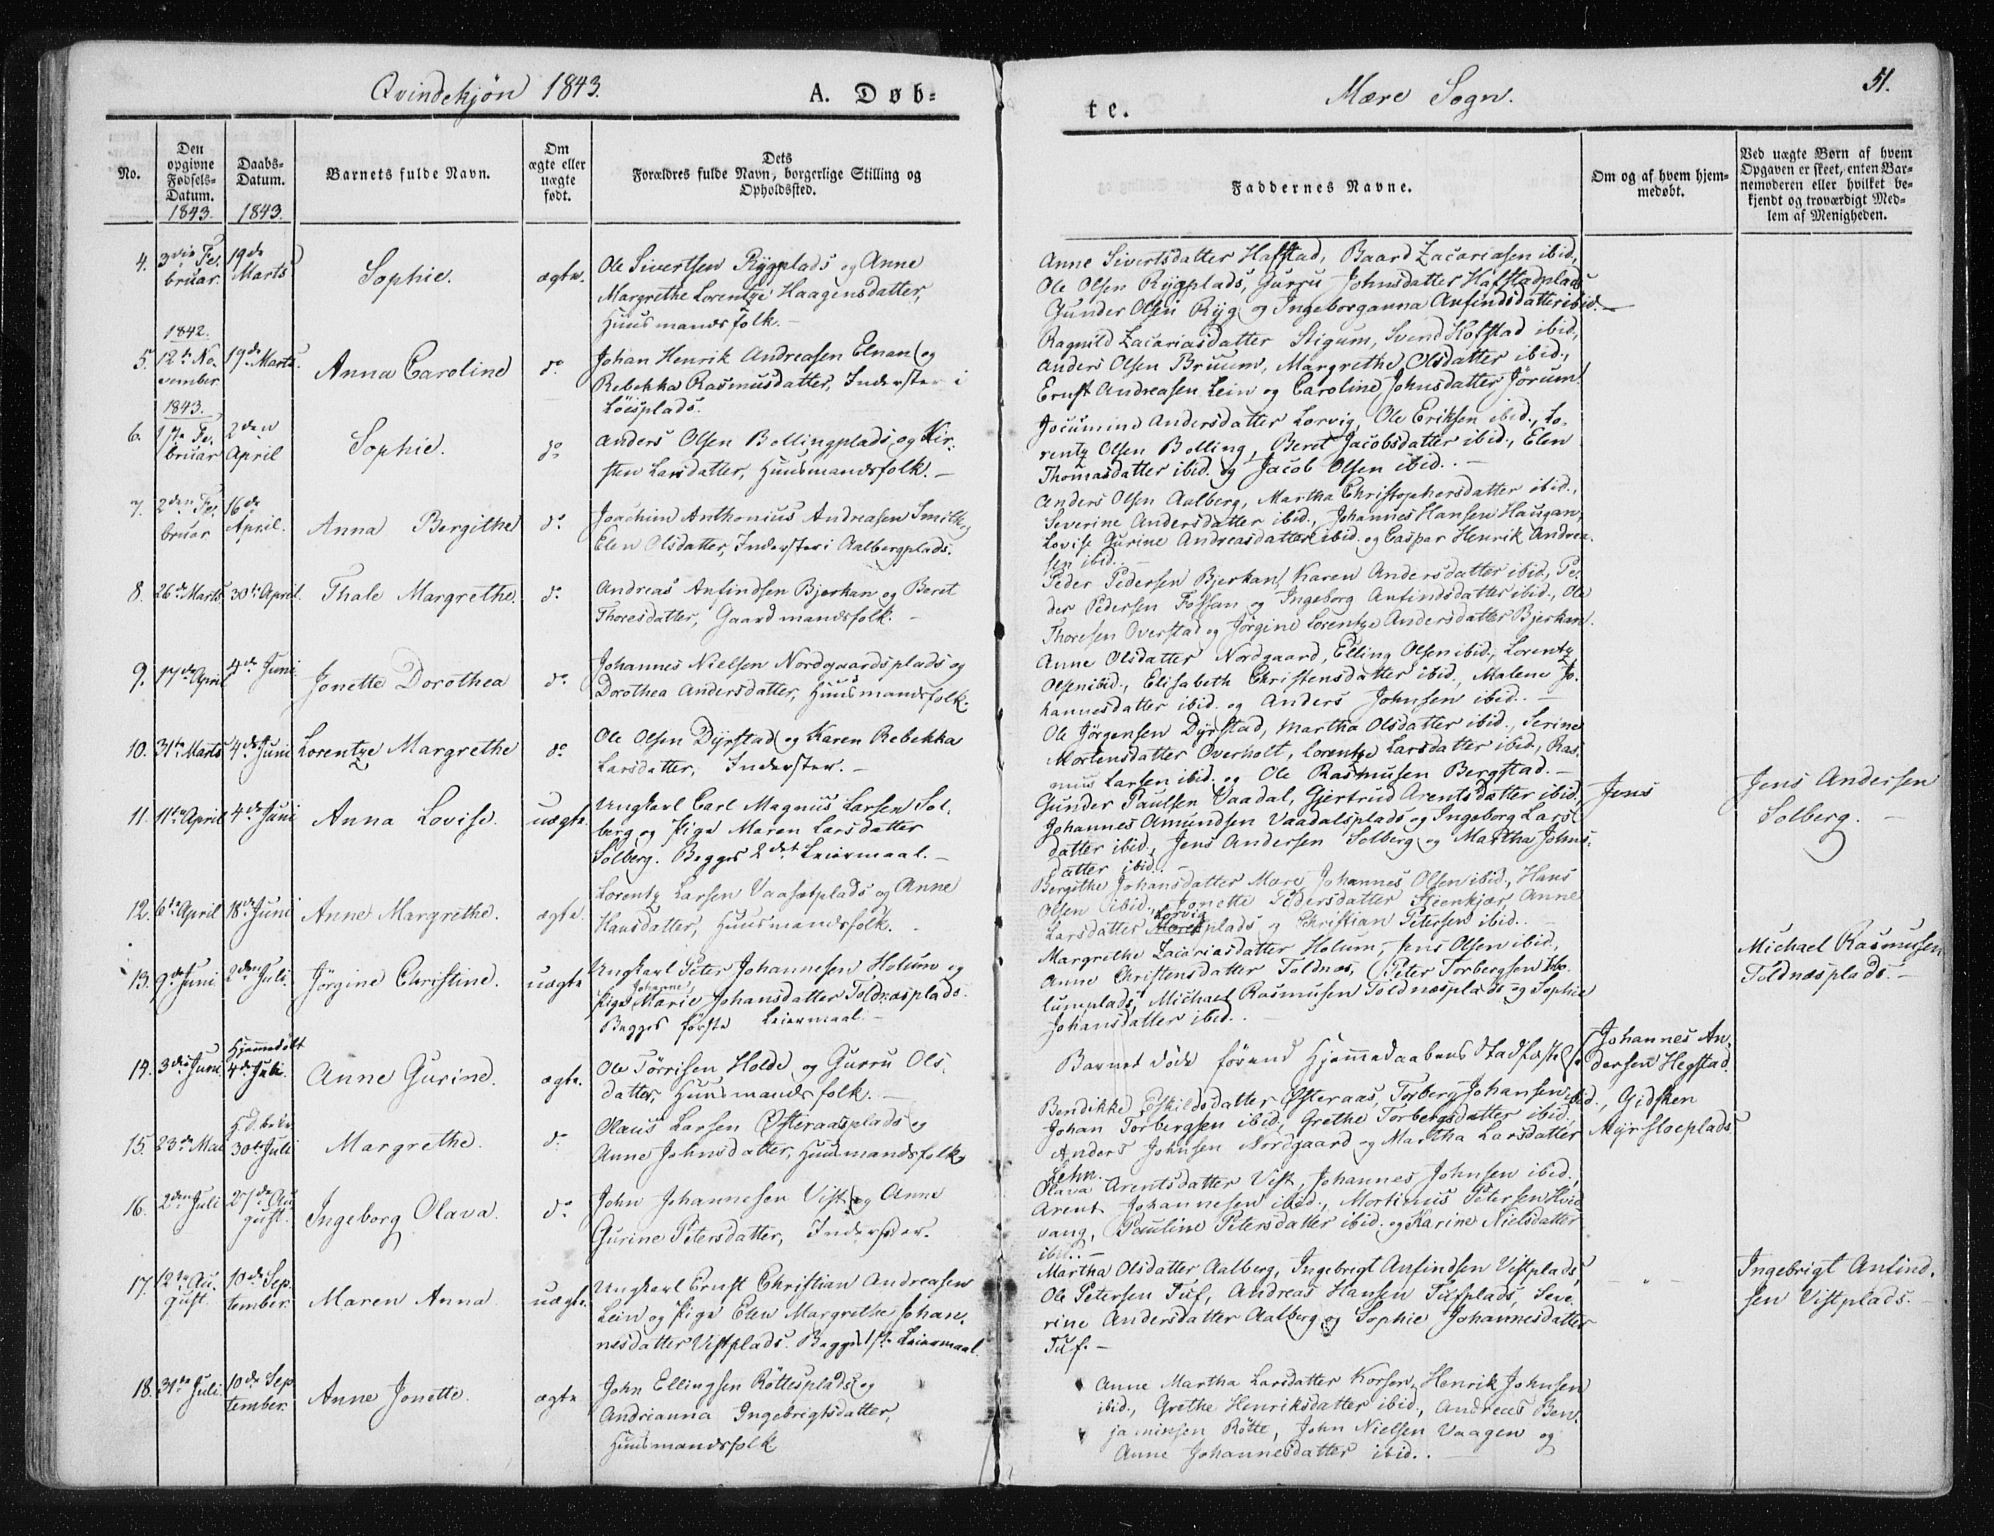 Qvindekjøn 1843.
A. Døb-
te.
Mære Sogn.
51.
No.
Den opgivne Fødsels-Datum.
1843.
Daabs-Datum.
1843.
Barnets fulde Navn.
Om ægte eller uægte født.
Dets
Forældres fulde Navn, borgerlige Stilling og
Opholdssted.
Faddernes Navne.
Om og af hvem hjem-
medøbt.
Ved uægte Børn af hvem
Opgaven er skeet, enten Bar-
nemoderen eller hvilket be-
kjendt og troværdigt Med-
lem af Menigheden.
4. 3die Fe-
bruar.
19de
Marts
Sophie.
ægte.
Ole Sivertsen Rygplads og Anne
Margrethe Lorentze Haagensdatter,
Huusmandsfolk.-
Anne Sivertsdatter Hafstad, Baard Zacariasen ibid.,
Ole Olsen Rygplads, Gurru Johnsdatter Hafstadplads
Gunder Olsen Ryg og Ingeborganna Anfindsdatter ibid.-
1842.
5. 12te No-
vember
19de Marts.
Anna Caroline
do
Johan Henrik Andreasen Elnan og
Rebekka Rasmusdatter, Inderster i
Løesplads.
Ragnild Zacariasdatter Stigum, Svend Hofstad ibid,
Anders Olsen Bruum, Margrethe Olsdatter ibid.,
Ernst Andreasen Lein og Caroline Johnsdatter Jørum.
1843.
6. 1ste Fe-
bruar
2den
April
Sophie.
do
Anders Olsen Bollingplads og Kir-
sten Larsdatter, Huusmandsfolk.-
Jocumine Andersdatter Lorvig, Ole Eriksen ibid., Lo-
rentz Olsen Bolling, Beret Jacobsdatter ibid., Elen
Thomasdatter ibid. og Jacob Olsen ibid.-
7. 2den Fe-
bruar
16de
April.
Anna Bergithe
do
Joachim Anthonius Andreasen Smilk og
Elen Olsdatter, Inderster i Aalbergplads.
Anders Olsen Aalberg, Martha Christophersdatter ibid.,
Severine Andersdatter ibid., Johannes Hansen Haugan,
Lovise Gurine Andreasdatter ibid. og Caspar Henrik Andrea-
sen ibid.-
8. 26de Marts 30te April.
Thale Margrethe.
do
Andreas Anfindsen Bjerkan og Beret
Thoresdatter, Gaardmandsfolk.-
Peder Pedersen Bjerkan, Karen Andersdatter ibid., Pe-
der Pedersen Fossan og Ingeborg Anfindsdatter ibid., Ole
Thoresen Overstad og Jørgine Lorentze Andersdatter Bjerkan.
9. 17de April 4de Juni
Jonette Dorothea
do
Johannes Nielsen Nordgaardsplads og
Dorothea Andersdatter, Huusmandsfolk.
Anne Olsdatter Nordgaard, Elling Olsen ibid., Lorentz
Olsen ibid., Elisabeth Christensdatter ibid., Malene Jo-
hannesdatter ibid. og Anders Johnsen ibid.-
10. 31te Marts 4de Juni
Lorentze Margrethe
do
Ole Olsen Dyrstad og Karen Rebekka
Larsdatter, Inderster.-
Ole Jørgensen Dyrstad, Martha Olsdatter ibid., Serine
Mortensdatter Overholt, Lorentze Larsdatter ibid., Ras-
mus Larsen ibid. og Ole Rasmusen Bergstad.-
11. 11te April 4de Juni
Anna Lovise.
uægte.
Ungkarl Carl Magnus Larsen Sol-
berg og Pige Maren Larsdatter
Solberg. Begges 2det Leiermaal.-
Gunder Paulsen Vaadal, Gjertrud Arentsdatter ibid.,
Johannes Amundsen Vaadalsplads og Ingeborg Lars-
datter ibid., Jens Andersen Solberg og Martha Johns-
datter ibid.-
Jens
Jens Andersen
Solberg.-
12. 6te April 18de Juni
Anne Margrethe.
ægte.
Lorentz Larsen Vaasætplads og Anne
Hansdatter, Huusmandsfolk.
Bergithe Johansdatter Mære, Johannes Olsen ibid., Hans
Olsen ibid., Jonette Pedersdatter Steenkjær, Anne
Larsdatter Lorvigplads og Christian Petersen ibid.-
13. 9de Juni 2den Juli.
Jørgine Christine.
uægte
Ungkarl Peter Johannesen Holum og
Pige Johanne Marie Johansdatter Toldnæsplads.
Begges første Leiermaal.-
Margrethe Zacariasdatter Holum, Jens Olsen ibid.,
Anne Christensdatter Toldnæs, Peter Torbergsen Ho-
lumplads, Michael Rasmusen Toldnæsplads og Sophie
Johansdatter ibid.-
Michael Rasmusen
Toldnæsplads.-
14. 3die Juni
Hjemmedøbt
4de Juli.
Anne Gurine.
ægte.
Ole Tørrisen Holde og Gurru Ols-
datter, Huusmandsfolk.-
Barnet døde førend Hjemmedaabens Stadfæstelse
Johannes An-
dersen Hegstad.
15. 23de Mai
H.d. bekr.
30te Juli
Margrethe.
do
Olaus Larsen Østeraasplads og
Anne Johnsdatter, Huusmandsfolk.
Bendikke Eskildsdatter Østeraas, Torberg Johansen ibid.,
Johan Torbergsen ibid., Grethe Torbergsdatter ibid.,
Anders Johnsen Nordgaard og Martha Larsdatter
Lehn.
Gidsken
Myrsloeplads
16. 2den Juli
27de Au-
gust.
Ingeborg Olava.
do
John Johannesen Vist og Anne
Gurine Petersdatter, Inderster.
Olava Arentsdatter Vist, Johannes Johnsen ibid.,
Arent Johannesen ibid., Mortinus Petersen Hvid-
vang, Pauline Petersdatter ibid. og Karine Nielsdatter
ibid.-
17. 12te Au-
gust.
10de Sep-
tember.
Maren Anna
uægte.
Ungkarl Ernst Christian Andreasen
Lein og Pige Elen Margrethe Johan-
nesdatter Vistplads. Begges 1ste Leiermaal.
Martha Olsdatter Aalberg, Ingebrigt Anfindsen Vistplads,
Ole Petersen Tuf, Andreas Hansen Tufplads, Seve-
rine Andersdatter Aalberg og Sophie Johannesdatter
Tuf.-
- " -
Ingebrigt Anfind-
sen Vistplads.-
18. 31te Juli.
10de Sep-
tember.
Anne Jonette.
ægte
John Ellingsen Røttesplads og
Andrianna Ingebrigtsdatter,
Huusmandsfolk
Anne Martha Larsdatter Korsen, Henrik Johnsen
ibid., Grethe Henriksdatter ibid., Andreas Ben-
jaminsen Røtte, John Nielsen Vaagen og
Anne Johannesdatter ibid.-